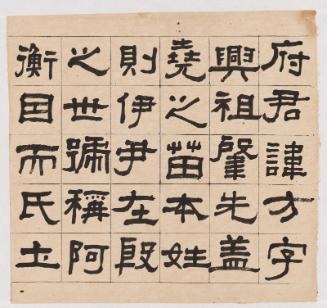 府君諱方字
興祖肇先蓋
堯之苗本姓
則伊尹在殷
之世號稱阿
衡因而氏土